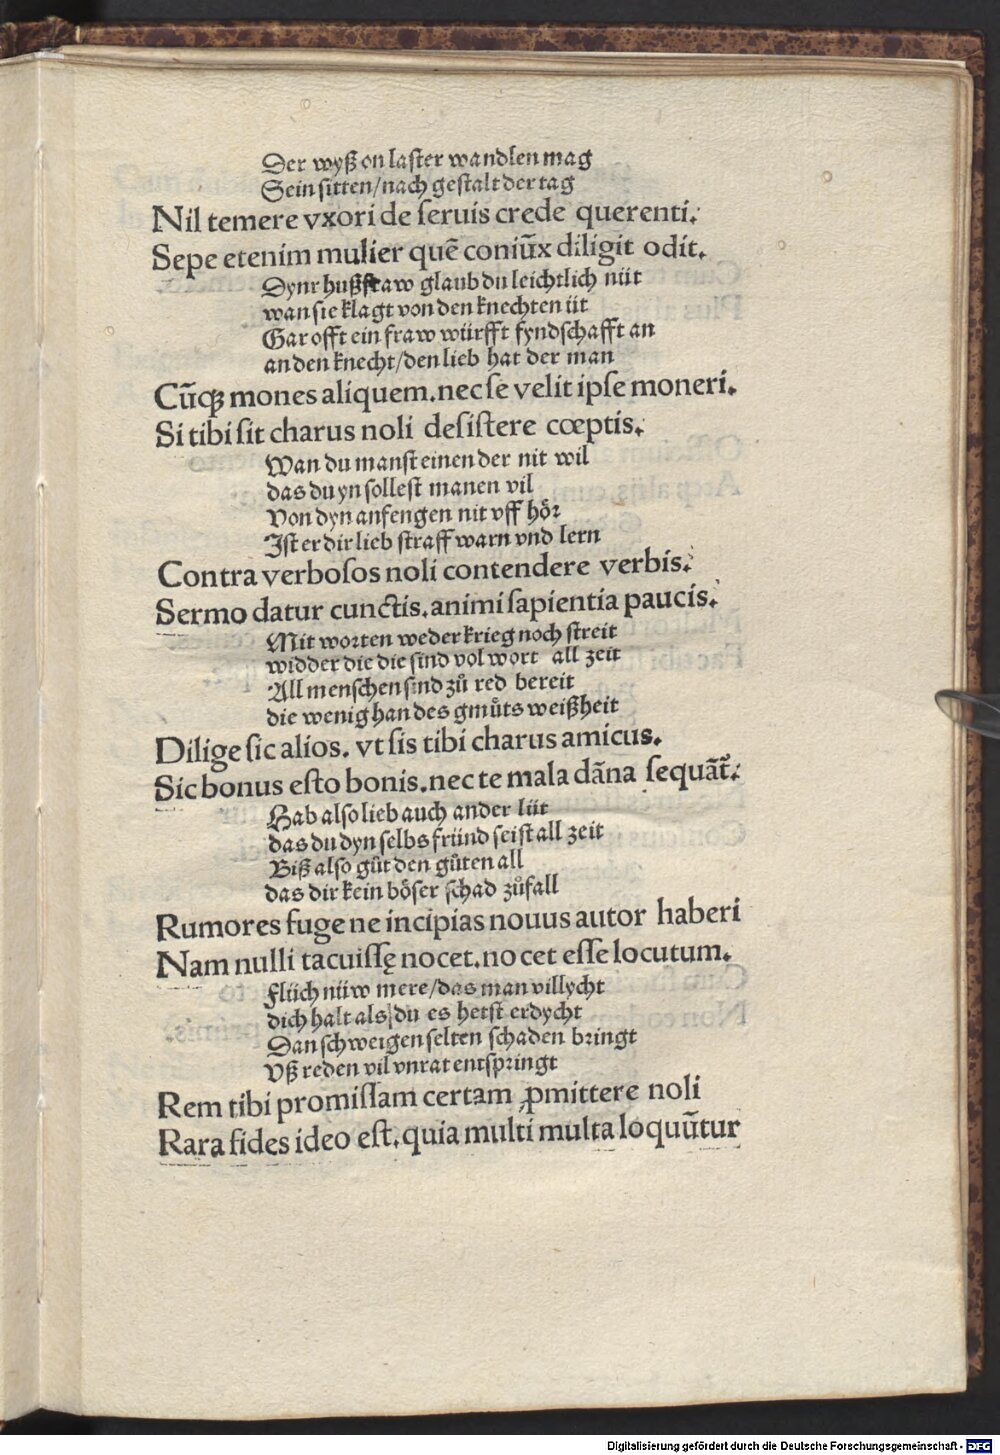 Der wyß on laster wandlen mag
Sein sitten/nach gestalt der tag
Nil temere vxori de seruis crede querenti.
Sepe etenim mulier quē coniūx diligit odit.
Dynr hußfraw glaub du leichtlich nüt
wan sie klagt von den knechten üt
Gar offt ein fraw würfft fyndschafft an
an den knecht/den lieb hat der man
Cūqꝫ mones aliquem.nec se velit ipse moneri.
Si tibi sit charus noli desistere cœptis.
Wan du manst einen der nit wil
das du yn sollest manen vil
Von dyn anfengen nit vff hör
Ist er dir lieb straff warn vnd lern
Contra verbosos noli contendere verbis.
Sermo datur cunctis.animi sapientia paucis.
Mit worten weder krieg noch streit
widder die die sind vol wort all zeit
All menschen sind zů red bereit
die wenig han des gmůts weißheit
Dilige sic alios. vt sis tibi charus amicus.
Sic bonus esto bonis.nec te mala dāna sequāt᷑.
Hab also lieb auch ander lüt
das du dyn selbs fründ seist all zeit
Biß also gůt den gůten all
das dir kein böser schad zůfall
Rumores fuge ne incipias nouus autor haberi
Nam nulli tacuissę nocet.nocet esse locutum.
Flüch nüw mere/das man villycht
dich halt als du es hetst erdycht
Dan schweigen selten schaden bringt
Vß reden vil vnrat entspringt
Rem tibi promissam certam ꝓmittere noli
Rara fides ideo est.quia multi multa loquūtur
Digitalisierung gefördert durch die Deutsche Forschungsgemeinschaft - DFG